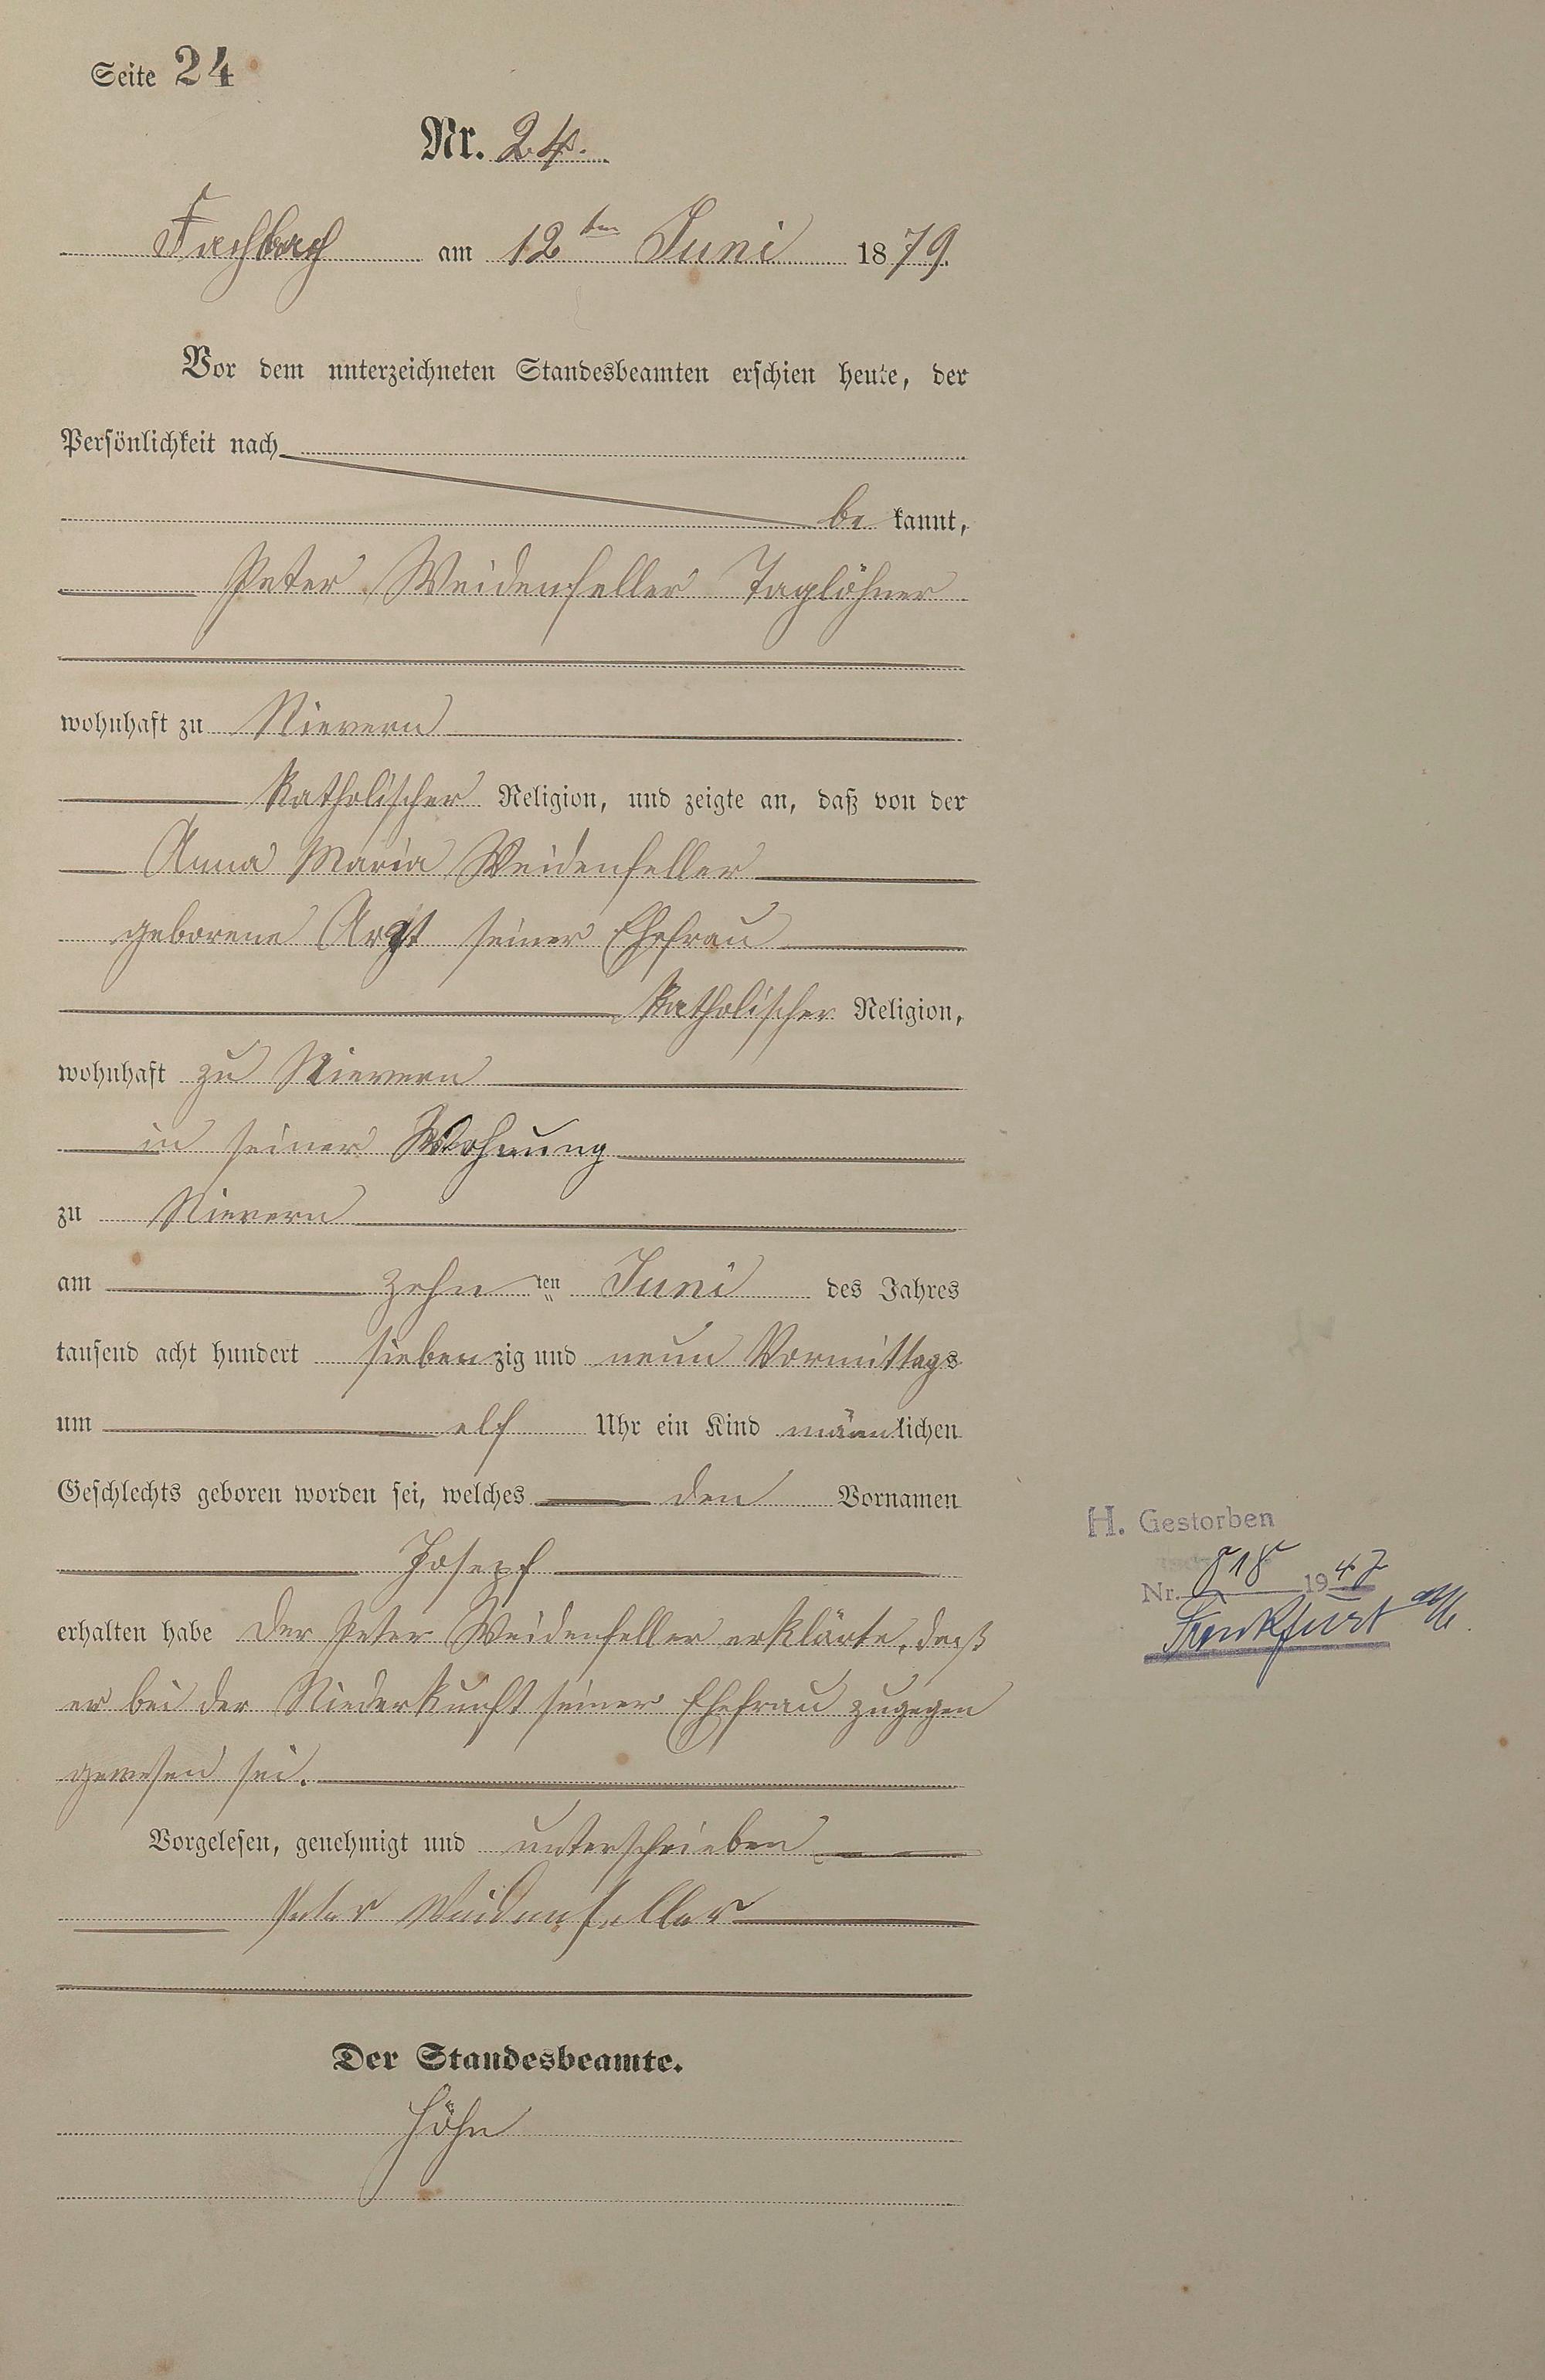 Seite 24
Nr. 24.
Fachbach am 12ten Juni 1879.
Vor dem unterzeichneten Standesbeamten erschien heute, der
Persönlichkeit nach
be kannt,
Peter Weidenfeller Taglöhner
wohnhaft zu Nievern
katholischer Religion, und zeigte an, daß von der
Anna Maria Weidenfeller
geborene Arzt seiner Ehefrau
katholischer Religion,
wohnhaft zu Nievern
in seiner Wohnung
zu Nievern
am zehn ten Juni des Jahres
tausend acht hundert sieben zig und neun Vormittags
um elf Uhr ein Kind männlichen
Geschlechts geboren worden sei, welches den Vornamen
Josepf
erhalten habe Der Peter Weidenfeller erklärte, daß
er bei der Niederkunft seiner Ehefrau zugegen
gewesen sei.
Vorgelesen, genehmigt und unterschrieben
Peter Weidenfeller
Der Standesbeamte.
Höhn
H. Gestorben
Nr. 818 1947
Frankfurt a/M.